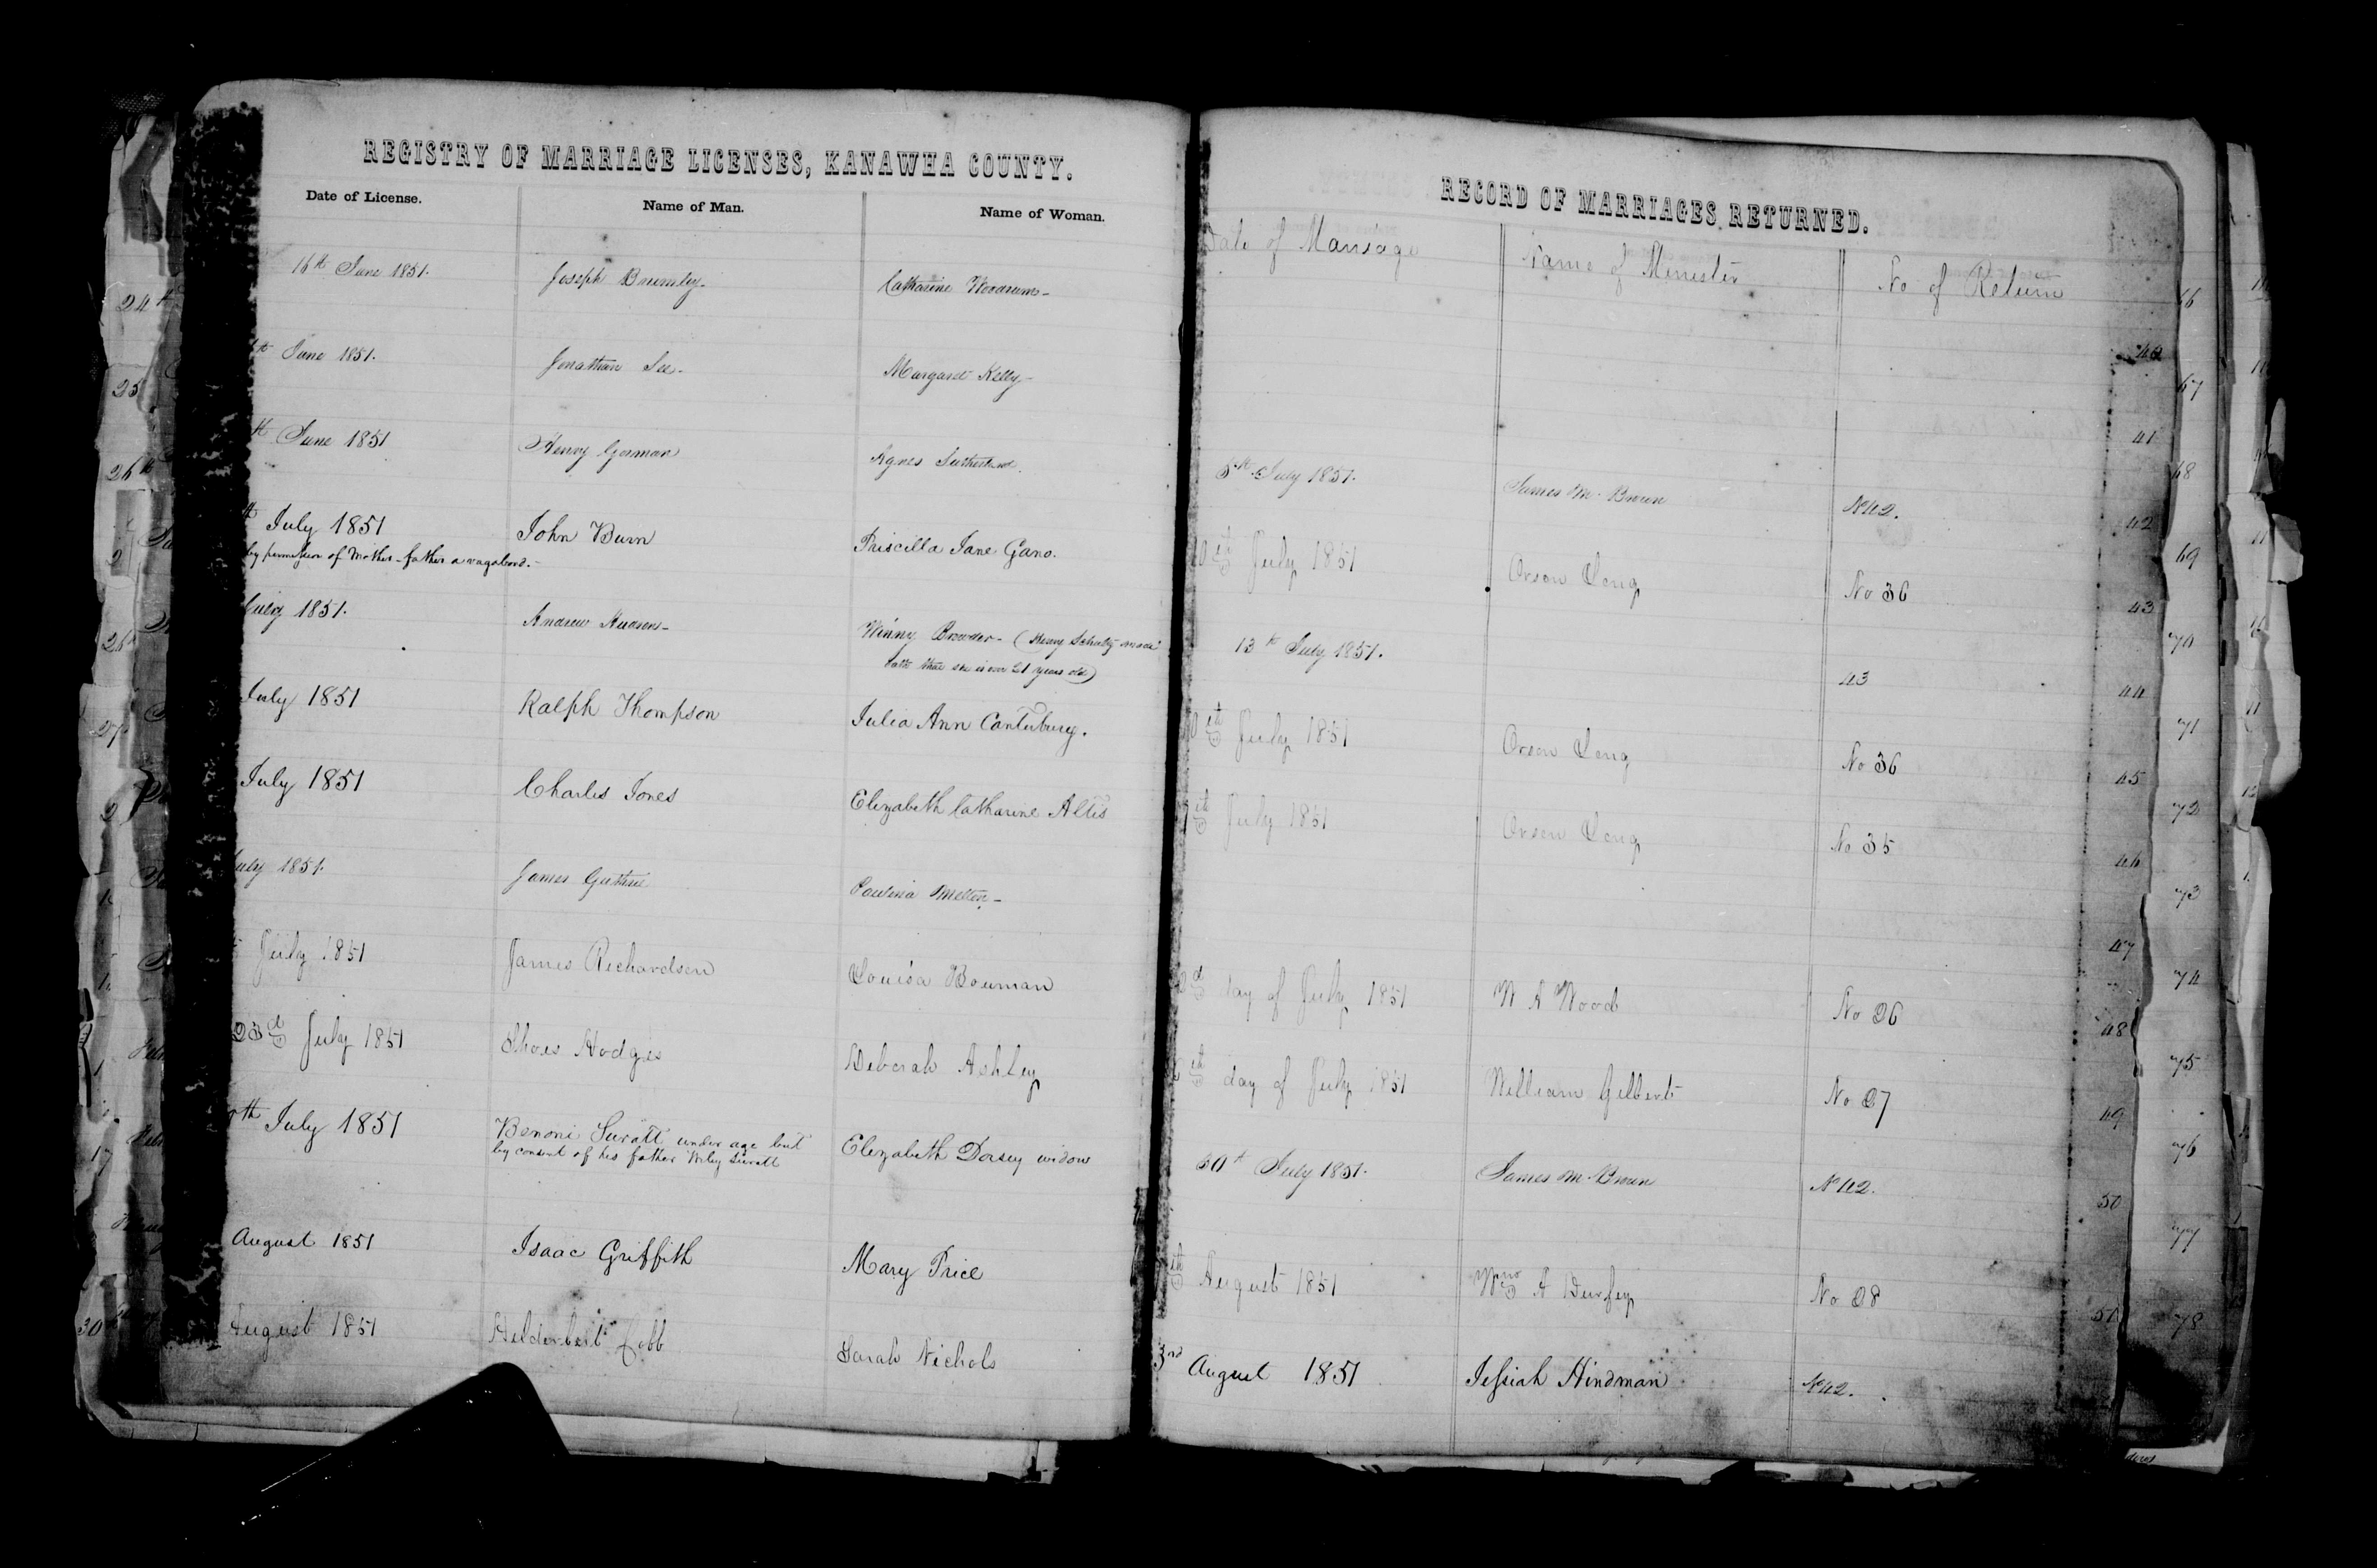 REGISTRY OF MARRIAGE LICENSES, KANAWHA COUNTY.
Date of License. Name of Man. Name of Woman.
16th June 1851. Joseph Brumley Catharine Woodrum
June 1851. Jonathan See Margaret Kelly
June 1851 Henry Gorman Agnes Sutherland
July 1851 John Burn Priscilla Jane Gano.
by permission of Mother - father a vagabond.
July 1851. Andrew Hudson Winny Browder - (Henry made
oath that she is over 21 years old)
July 1851 Ralph Thompson Julia Ann Canterbury.
July 1851 Charles Jones Elizabeth Catharine Altis
July 1851. James Guthrie Melton
July 1851 James Richardson Louisa Bowman
23d July 1851 Hodges Deborah Ashley
th July 1851 Benoni Suratt under age but Elizabeth Dorsey widow
by consent of his father Wiley Suratt
August 1851 Isaac Griffith Mary Price
August 1851 Cobb Sarah Nichols
RECORD OF MARRIAGES RETURNED.
Date of Marriage Name of Minister No of Return
5th July 1851. James M. Brown No 42.
10th July 1851 Orson Long No 36
13th July 1851. 43
10th July 1851 Orson Long No 36
July 1851 Orson Long No 35
day of July 1851 W A Wood No 26
day of July 1851 William Gilbert No 27
30th July 1851. James M. Brown No 42.
August 1851 Wm A No 28
3rd August 1851 Jessiah Hindman No 42.
40
41
42
43
44
45
46
47
48
49
50
51
66
67
68
69
70
71
72
73
74
75
76
77
78